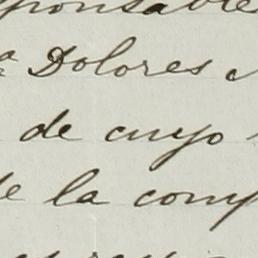 ponsable
ª Dolores
de cuyo
de la comp